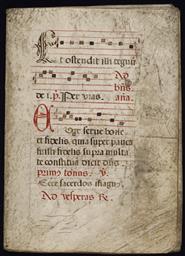 Et ostendit illi regnū
Ad
de i. p. Per vias. aña.
Euge serve bone
et fidelis, quia super pauca
fuisti fidelis supra multa
te constituā dicit dñs.
primus tonus. ℣.
Ecce sacerdos magn⁹
Ad vesperas